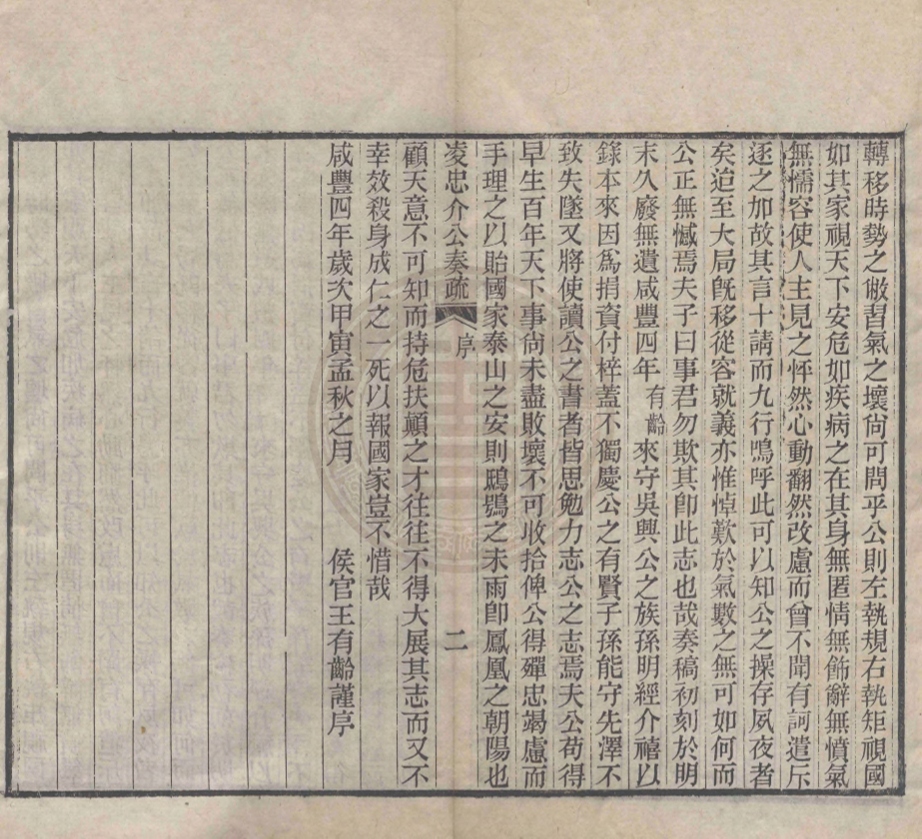 轉移時勢之敝習氣之壞尙可問乎公則左執規右執矩視國
如其家視天下安危如疾病之在其身無匿情無飾辭無憤氣
無懦容使人主見之怦然心動翻然改慮而曾不聞有訶遣斥
逐之加故其言十請而九行嗚呼此可以知公之操存夙夜者
矣迨至大局旣移從容就義亦惟悼歎於氣數之無可如何而
公正無憾焉夫子曰事君勿欺其卽此志也哉奏稿初刻於明
末久廢無遺咸豐四年有齡來守吳興公之族孫明經介禧以
錄本來因爲捐資付梓蓋不獨慶公之有賢子孫能守先澤不
致失墜又將使讀公之書者皆思勉力志公之志焉夫公苟得
早生百年天下事尙未盡敗壞不可收拾俾公得殫忠竭慮而
手理之以貽國家泰山之安則鴟鴞之未雨卽鳳凰之朝陽也
凌忠介公奏疏 序 二
顧天意不可知而持危扶顚之才往往不得大展其志而又不
幸效殺身成仁之一死以報國家豈不惜哉
咸豐四年歲次甲寅孟秋之月 侯官王有齡謹序